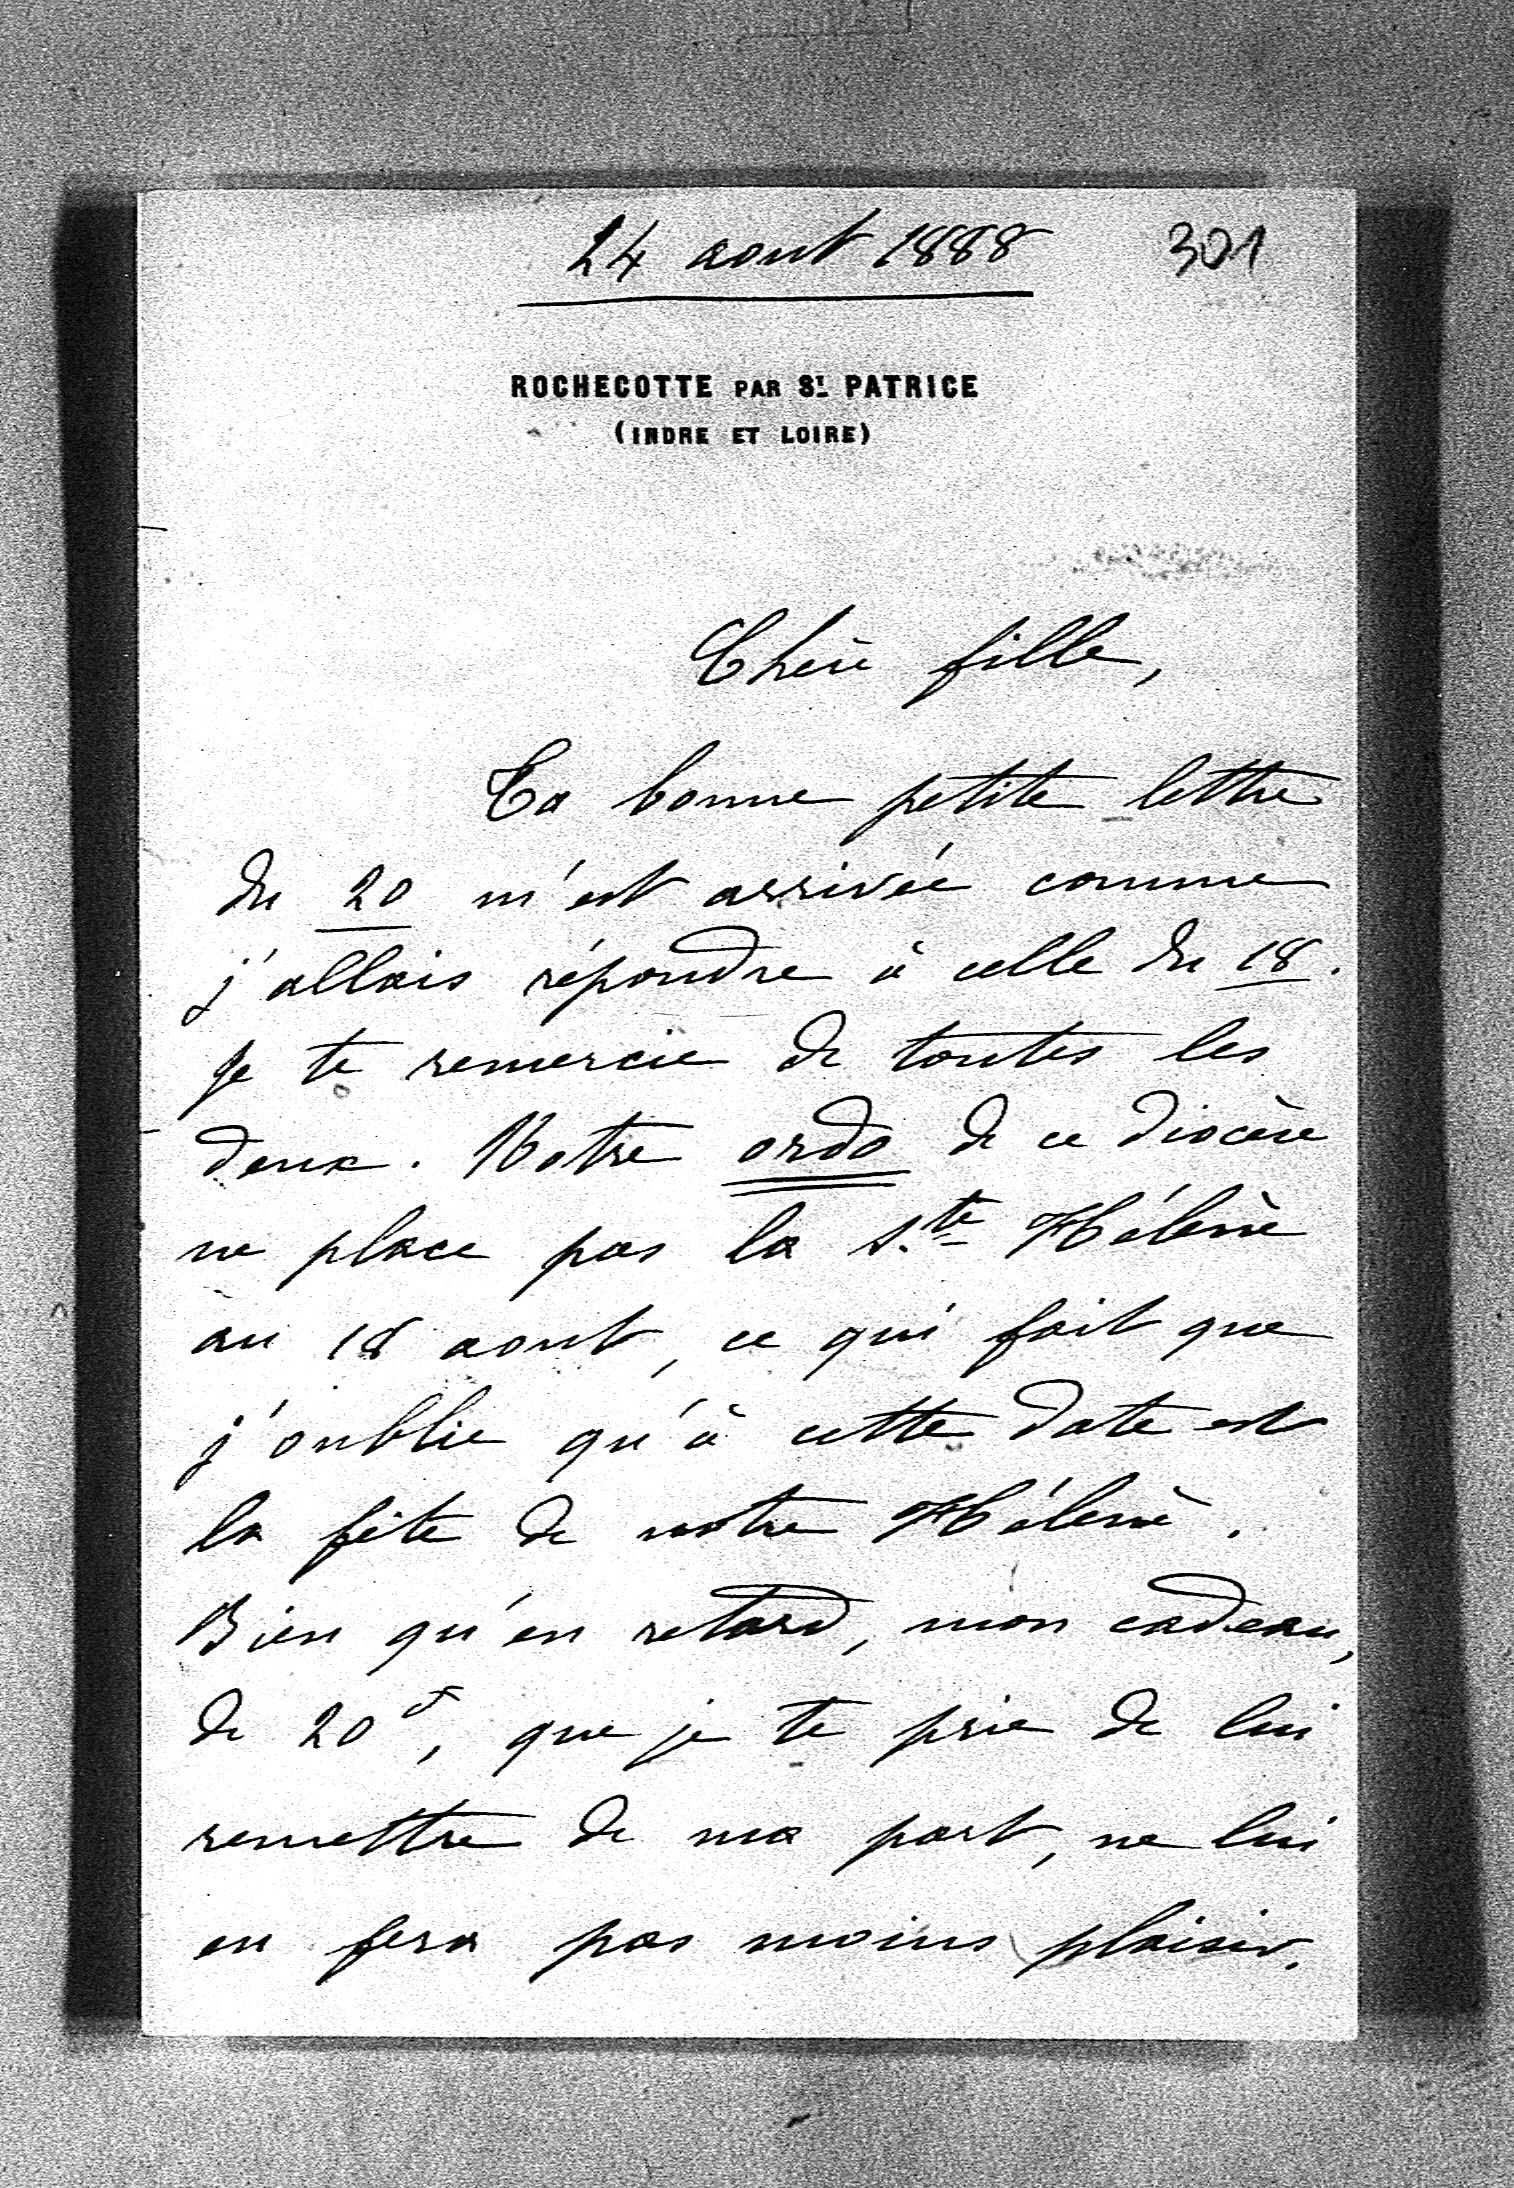 24 aout 1888 301
ROCHECOTTE PAR ST PATRICE
(INDRE ET LOIRE)
Chère fille,
Ta bonne petite lettre
du 20 m'est arrivée comme
j'allais répondre à celle du 18.
Je te remercie de toutes les
deux. Notre ordo de ce diocèse
ne place pas la Ste Hélène
au 18 aout, ce qui fait que
j'oublie qu'à cette date est
la fête de notre Hélène.
Bien qu'en retard, mon cadeau,
de 20f, que je te prie de lui
remettre de ma part, ne lui
en fera pas moins plaisir.